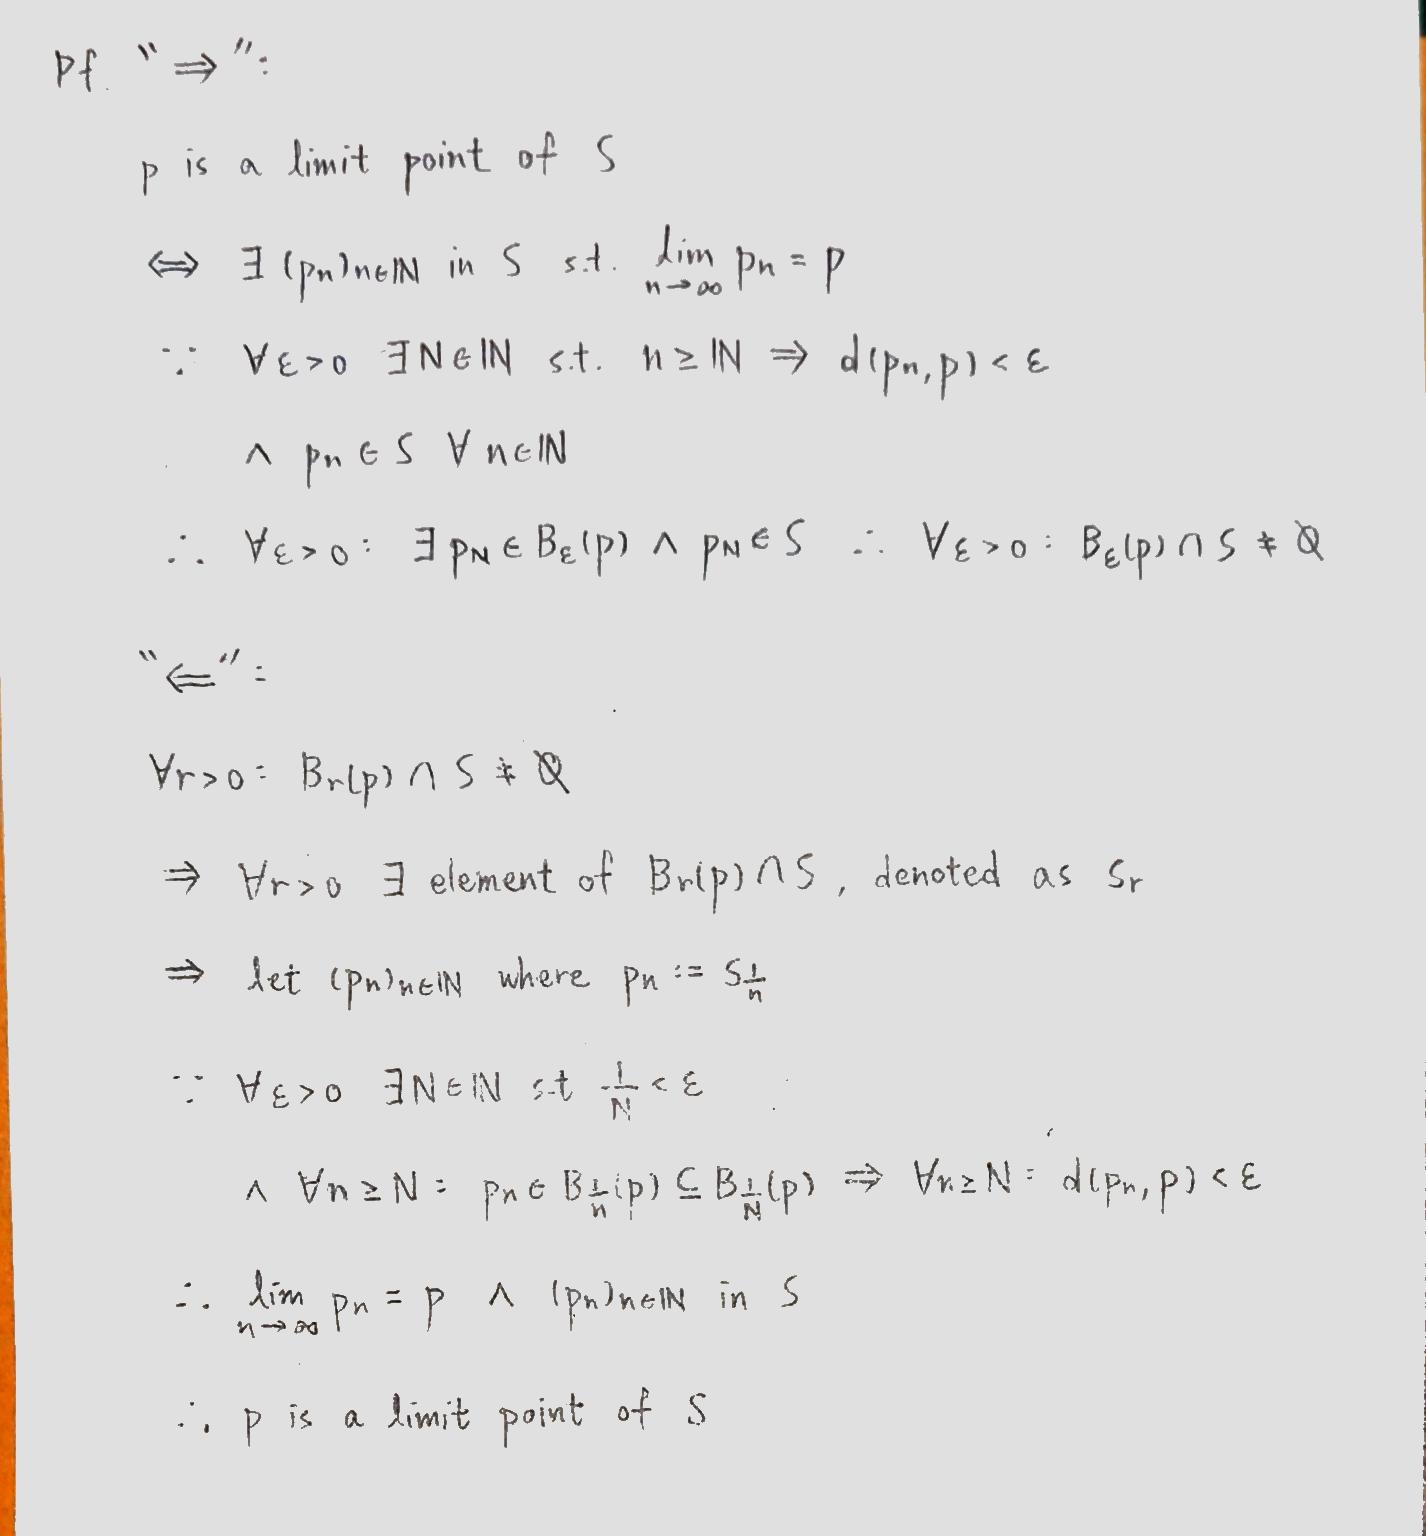 Pf. "⇒":
p is a limit point of S
⇔ ∃ (pn)n∈ℕ in S s.t. lim n→∞ pn = p
∵ ∀ε>0 ∃N∈ℕ s.t. n ≥ ℕ ⇒ d(pn,p) < ε
∧ pn ∈ S ∀ n∈ℕ
∴ ∀ε>0: ∃ pN ∈ Bε(p) ∧ pN ∈ S ∴ ∀ε>0: Bε(p) ∩ S ≠ ∅
"⇐":
∀r>0: Br(p) ∩ S ≠ ∅
⇒ ∀r>0 ∃ element of Br(p) ∩ S, denoted as Sr
⇒ let (pn)n∈ℕ where pn := S1/n
∵ ∀ε>0 ∃N∈ℕ s.t 1/N < ε
∧ ∀n ≥ N: pn ∈ B1/n(p) ⊆ B1/N(p) ⇒ ∀n ≥ N: d(pn,p) < ε
∴ lim n→∞ pn = p ∧ (pn)n∈ℕ in S
∴ p is a limit point of S